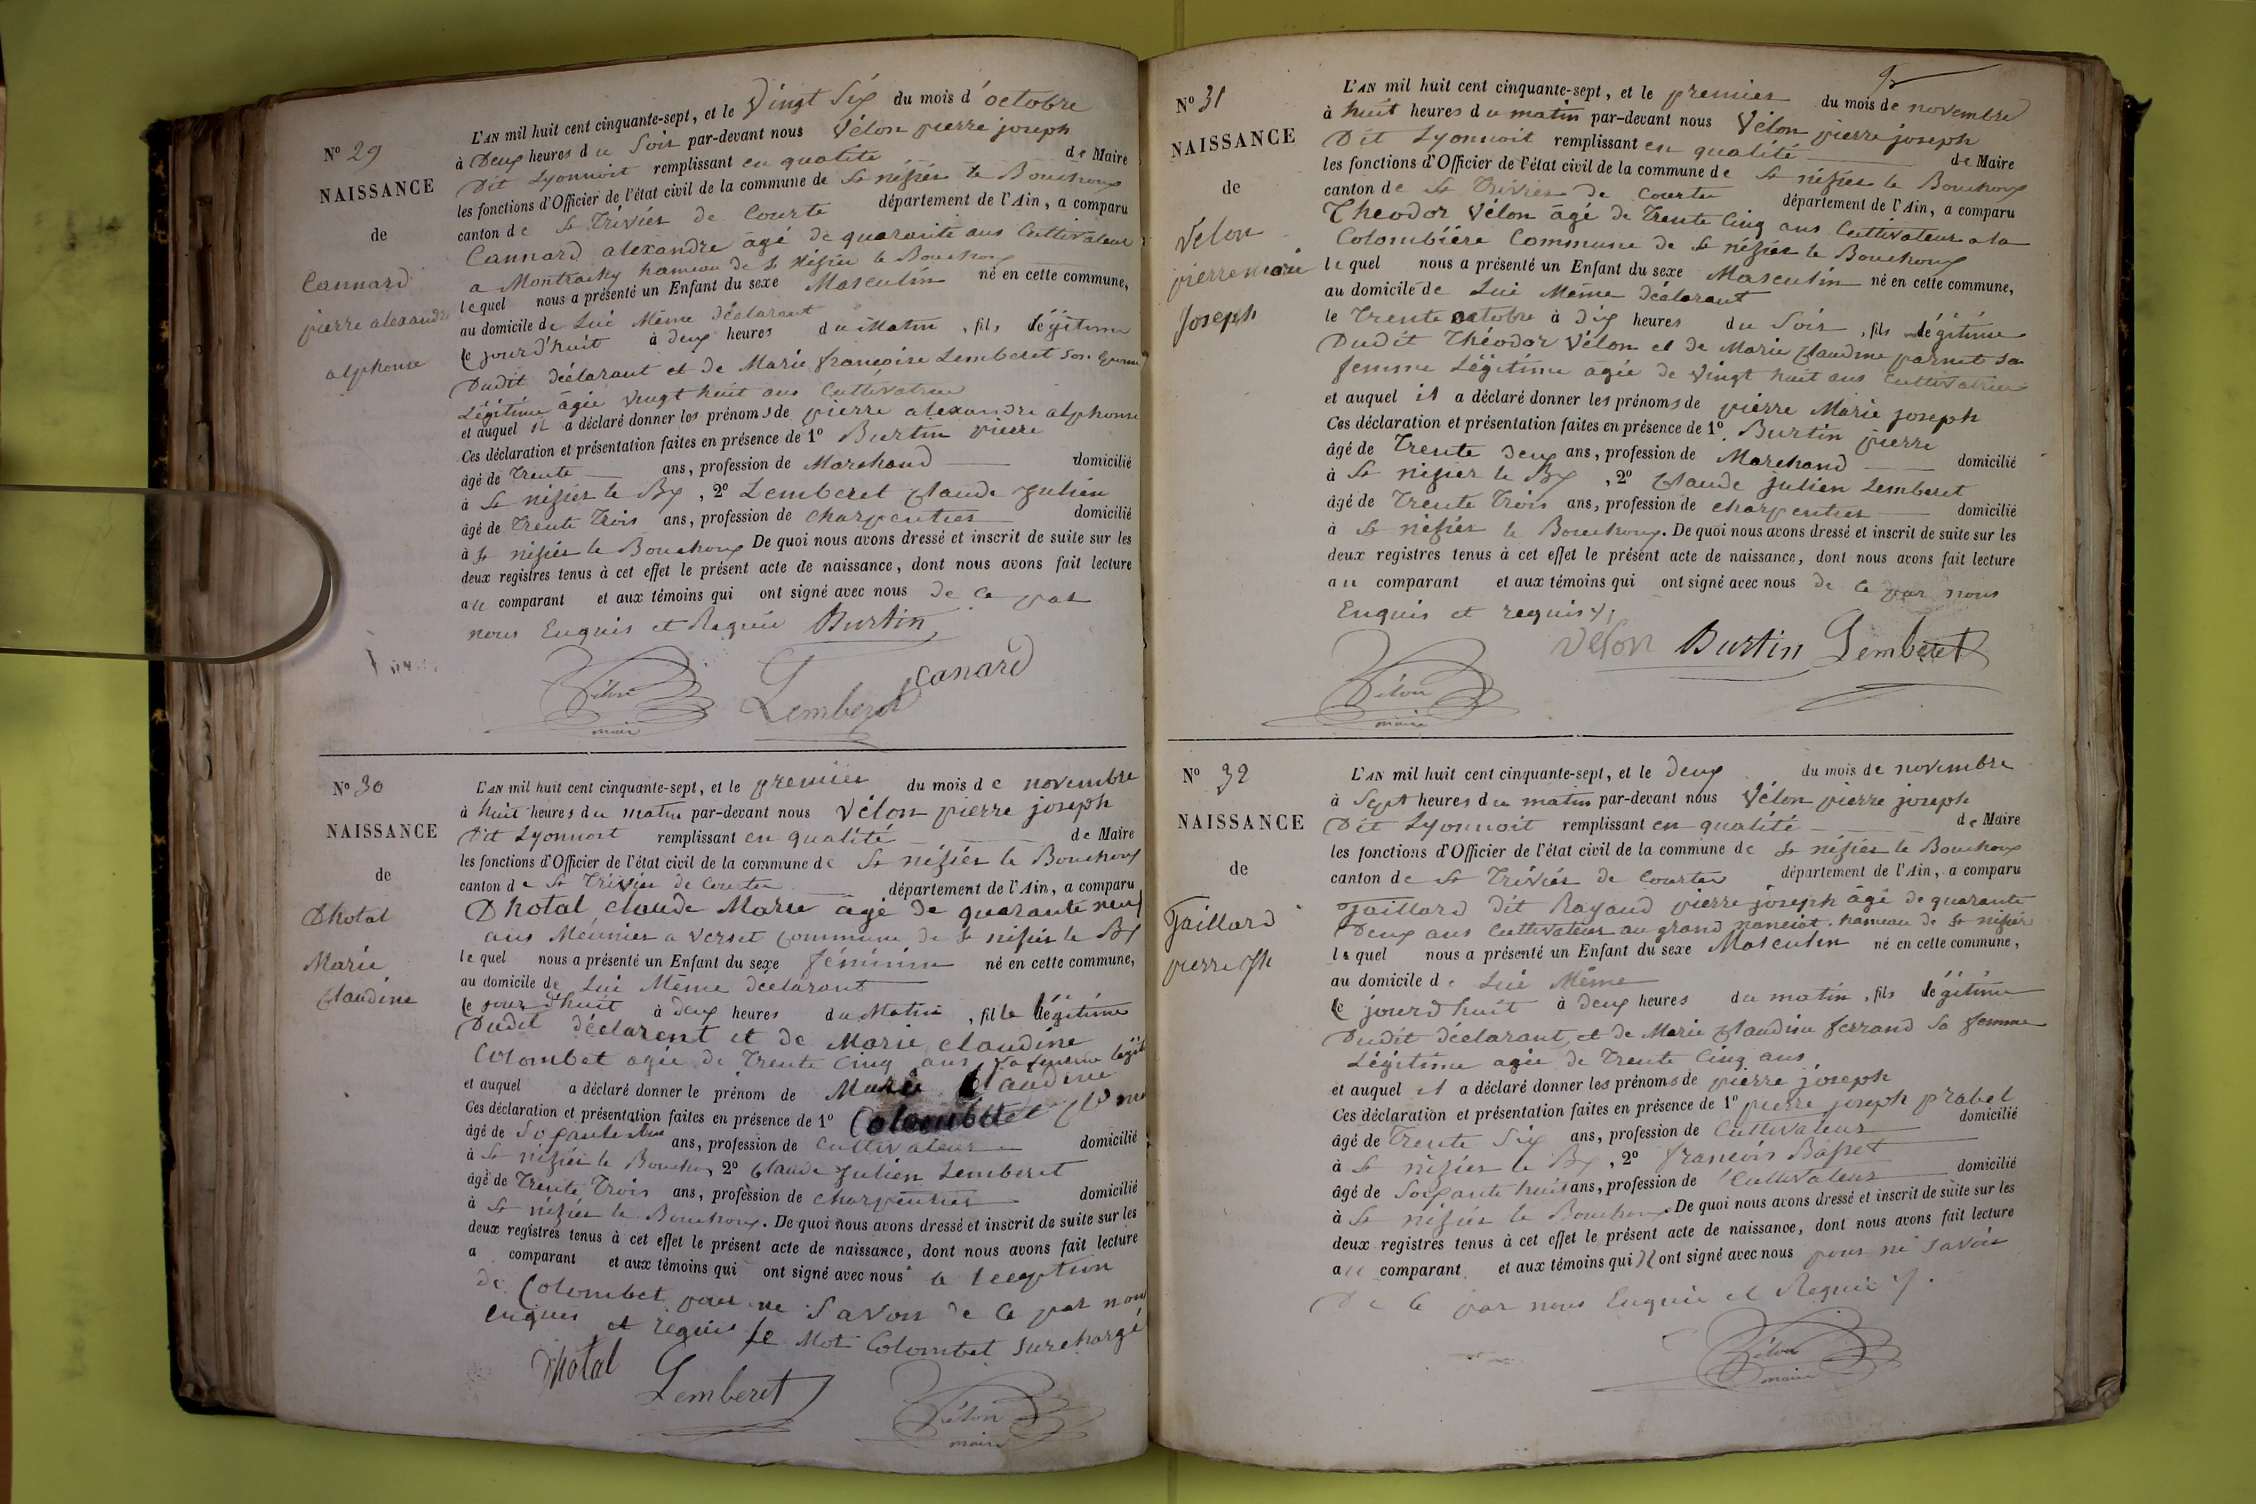 N° 29
NAISSANCE
de
Cannard
pierre alexandre
alphonse
L'AN mil huit cent cinquante-sept, et le Vingt Six du mois d'octobre
à Deux heures du Soir par-devant nous Vélon pierre joseph
Dit Lyonnoit remplissant en qualité de Maire
les fonctions d'Officier de l'état civil de la commune de St nisier le Bouchoux
canton de St Trivier de Courte département de l'Ain, a comparu
Cannard alexandre âgé de quarante ans Cultivateur
a hameau de St Nisier le Bouchoux
lequel nous a présenté un Enfant du sexe Masculin né en cette commune,
au domicile de Lui Même déclarant
le jourd'huit à deux heures du Matin, fils légitime
Dudit déclarant et de Marie françoise Lemberet son
Légitime âgée vingt huit ans Cultivatrice
et auquel il a déclaré donner les prénoms de pierre alexandre alphonse
Ces déclaration et présentation faites en présence de 1° Burtin pierre
âgé de Trente ans, profession de Marchand domicilié
à St nisier le Bx, 2° Lemberet Claude Julien
âgé de Trente Trois ans, profession de charpentier domicilié
à St nisier le Bouchoux De quoi nous avons dressé et inscrit de suite sur les
deux registres tenus à cet effet le présent acte de naissance, dont nous avons fait lecture
au comparant et aux témoins qui ont signé avec nous de ce par
nous Enquis et Requis Burtin
Vélon Lemberet canard
maire
N° 30
NAISSANCE
de
Dhotal
Marie
Claudine
L'AN mil huit cent cinquante-sept, et le premier du mois de novembre
à huit heures du matin par-devant nous Vélon pierre joseph
Dit Lyonnoit remplissant en qualité de Maire
les fonctions d'Officier de l'état civil de la commune de St nisier le Bouchoux
canton de St Trivier de Courte département de l'Ain, a comparu
Dhotal claude Marie âgé de quarante neuf
ans Meunier a Verset Commune de St nisier le Bx
lequel nous a présenté un Enfant du sexe féminin né en cette commune,
au domicile de Lui Même déclarant
le jour d'huit à deux heures du Matin, fille légitime
Dudit déclarent et de Marie claudine
Colombet agée de Trente Cinq ans sa femme
et auquel a déclaré donner le prénom de Marie Claudine
Ces déclaration et présentation faites en présence de 1° Colombet
âgé de ans, profession de Cultivateur domicilié
à St nisier le Bouchoux 2° Claude Julien Lemberet
âgé de Trente Trois ans, profession de charpentier domicilié
à St nisier le Bouchoux. De quoi nous avons dressé et inscrit de suite sur les
deux registres tenus à cet effet le présent acte de naissance, dont nous avons fait lecture
a comparant et aux témoins qui ont signé avec nous a
de Colombet pour ne Savoir de ce par nous
enquis et requis le Mot Colombet Surchargé
Dhotal Lemberet Vélon
maire
N° 31
NAISSANCE
de
Velon
pierre marie
Joseph
L'AN mil huit cent cinquante-sept, et le premier du mois de novembre
à huit heures du matin par-devant nous Vélon pierre joseph
Dit Lyonnoit remplissant en qualité de Maire
les fonctions d'Officier de l'état civil de la commune de St nisier le Bouchoux
canton de St Trivier de Courte département de l'Ain, a comparu
Theodor Vélon âgé de Trente Cinq ans Cultivateur a la
Colombière Commune de St nisier le Bouchoux
lequel nous a présenté un Enfant du sexe Masculin né en cette commune,
au domicile de Lui Même déclarant
le Trente octobre à Dix heures du Soir, fils légitime
Dudit Théodor Vélon et de Marie Claudine parnet sa
femme Légitime agée de vingt huit ans Cultivatrice
et auquel il a déclaré donner les prénoms de pierre Marie joseph
Ces déclaration et présentation faites en présence de 1° Burtin pierre
âgé de Trente Deux ans, profession de Marchand domicilié
à St nisier le Bx, 2° Claude Julien Lemberet
âgé de Trente Trois ans, profession de charpentier domicilié
à St nisier le Bouchoux. De quoi nous avons dressé et inscrit de suite sur les
deux registres tenus à cet effet le présent acte de naissance, dont nous avons fait lecture
au comparant et aux témoins qui ont signé avec nous de ce par nous
Enquis et requis
Vélon Velon Burtin Lemberet
maire
N° 32
NAISSANCE
de
Faillard
pierre Jh
L'AN mil huit cent cinquante-sept, et le deux du mois de novembre
à Sept heures du matin par-devant nous Vélon pierre joseph
Dit Lyonnoit remplissant en qualité de Maire
les fonctions d'Officier de l'état civil de la commune de St nisier le Bouchoux
canton de St Trivier de Courte département de l'Ain, a comparu
Faillard dit Rayaud pierre joseph âgé de quarante
Deux ans Cultivateur au grand hameau de St nisier
lequel nous a présenté un Enfant du sexe Masculin né en cette commune,
au domicile de Lui Même
le jourd'huit à deux heures du matin, fils légitime
Dudit déclarant, et de Marie Claudine ferrand Sa femme
Légitime agée de Trente Cinq ans
et auquel il a déclaré donner les prénoms de pierre joseph
Ces déclaration et présentation faites en présence de 1° pierre joseph prabel
âgé de Trente Six ans, profession de Cultivateur domicilié
à St nisier le Bx, 2° francois Basset
âgé de Soixante huit ans, profession de Cultivateur domicilié
à St nisier le Bouchoux De quoi nous avons dressé et inscrit de suite sur les
deux registres tenus à cet effet le présent acte de naissance, dont nous avons fait lecture
au comparant et aux témoins qui n'ont signé avec nous pour ne savoir
De ce par nous Enquis et Requis
Vélon
maire